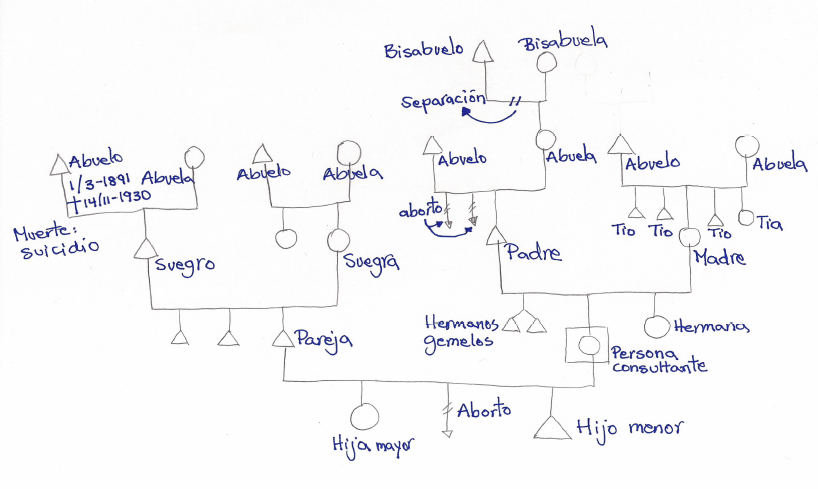 Bisabuelo
Bisabuela
Separación
Abuelo
1/3-1891
†14/11-1930
Abuela
Muerte:
suicidio
Abuelo
Abuela
Abuelo
Abuela
Abuelo
Abuela
aborto
Tio
Tio
Tio
Tia
Suegro
Suegra
Padre
Madre
Pareja
Hermanos
gemelos
Persona
consultante
Hermana
Hija mayor
Aborto
Hijo menor